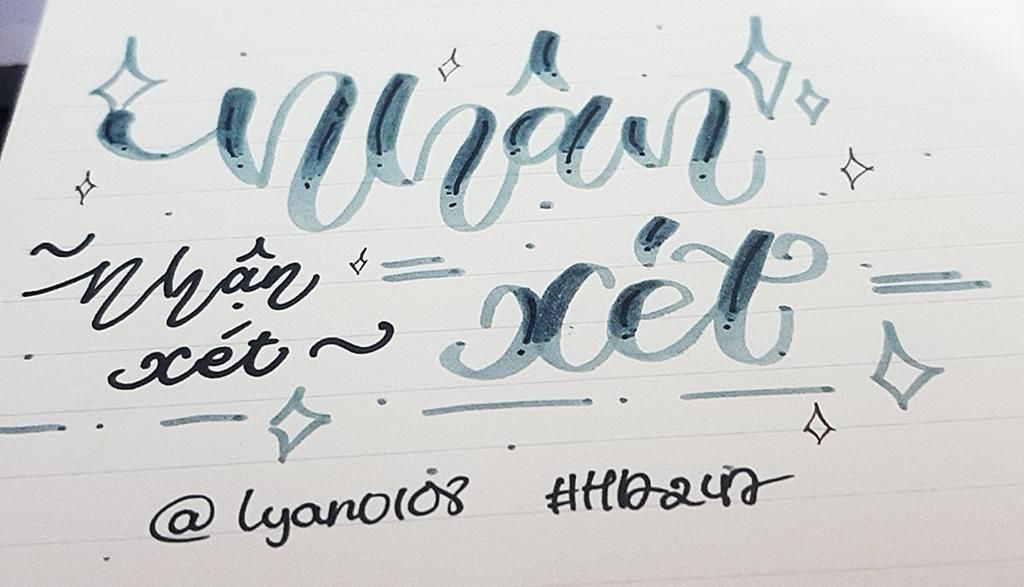 Nhận
xét
~Nhận
xét~
@lyano108 #HD247